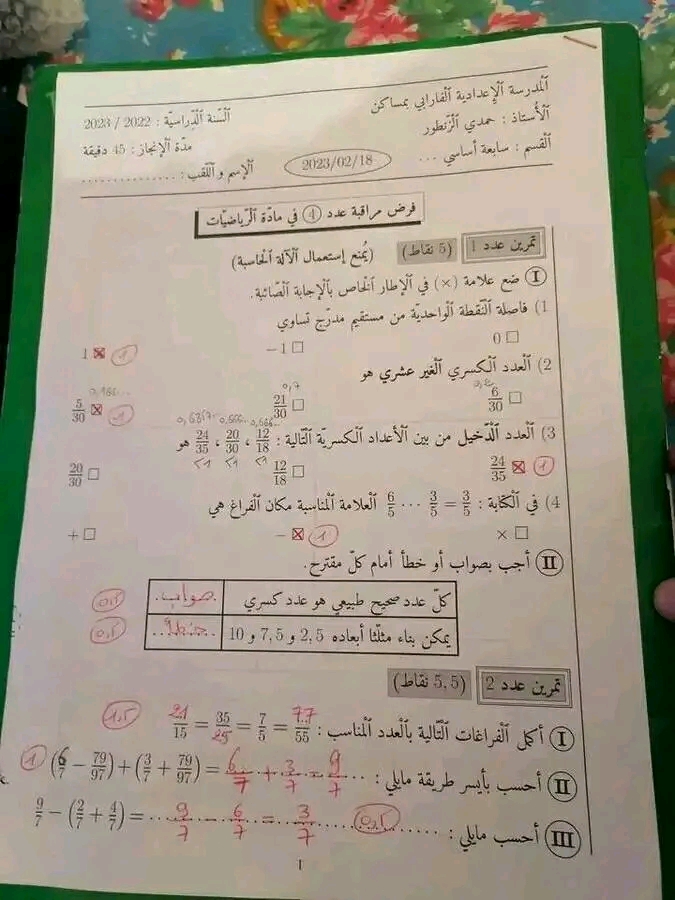 المدرسة الإعدادية الفارابي بمساكن
السنة الدراسية : 2022 / 2023
الأستاذ : حمدي الزنطور
مدة الإنجاز : 45 دقيقة
القسم : سابعة أساسي ...
2023/02/18
الإسم و اللقب : ................
فرض مراقبة عدد 4 في مادة الرياضيات
تمرين عدد 1 (5 نقاط) (يُمنع إستعمال الآلة الحاسبة)
I ضع علامة (×) في الإطار الخاص بالإجابة الصائبة.
1) فاصلة النقطة الواحدية من مستقيم مدرج تساوي
☐ 0 ☐ −1 ☒ 1 1
2) العدد الكسري الغير عشري هو
0,7 0,166...
☐ 6/30 ☐ 21/30 ☒ 5/30 1
0,666.. 0,666..
3) العدد الدخيل من بين الأعداد الكسرية التالية : 12/18 ، 20/30 ، 24/35 هو
<1 <1 <1
1 ☒ 24/35 ☐ 12/18 ☐ 20/30
4) في الكتابة : 6/5 ... 3/5 = 3/5 العلامة المناسبة مكان الفراغ هي
☐ × ☒ − 1 ☐ +
II أجب بصواب أو خطأ أمام كل مقترح.
كل عدد صحيح طبيعي هو عدد كسري صواب 0,5
يمكن بناء مثلثا أبعاده 2,5 و 7,5 و 10 خطأ 0,5
تمرين عدد 2 (5,5 نقاط)
I أكمل الفراغات التالية بالعدد المناسب : 21/15 = 35/25 = 7/5 = 77/55 1.5
II أحسب بأيسر طريقة مايلي : (6/7 − 79/97) + (3/7 + 79/97) = 6/7 + 3/7 = 9/7 1
III أحسب مايلي : 9/7 − (2/7 + 4/7) = 9/7 − 6/7 = 3/7 0,5
1